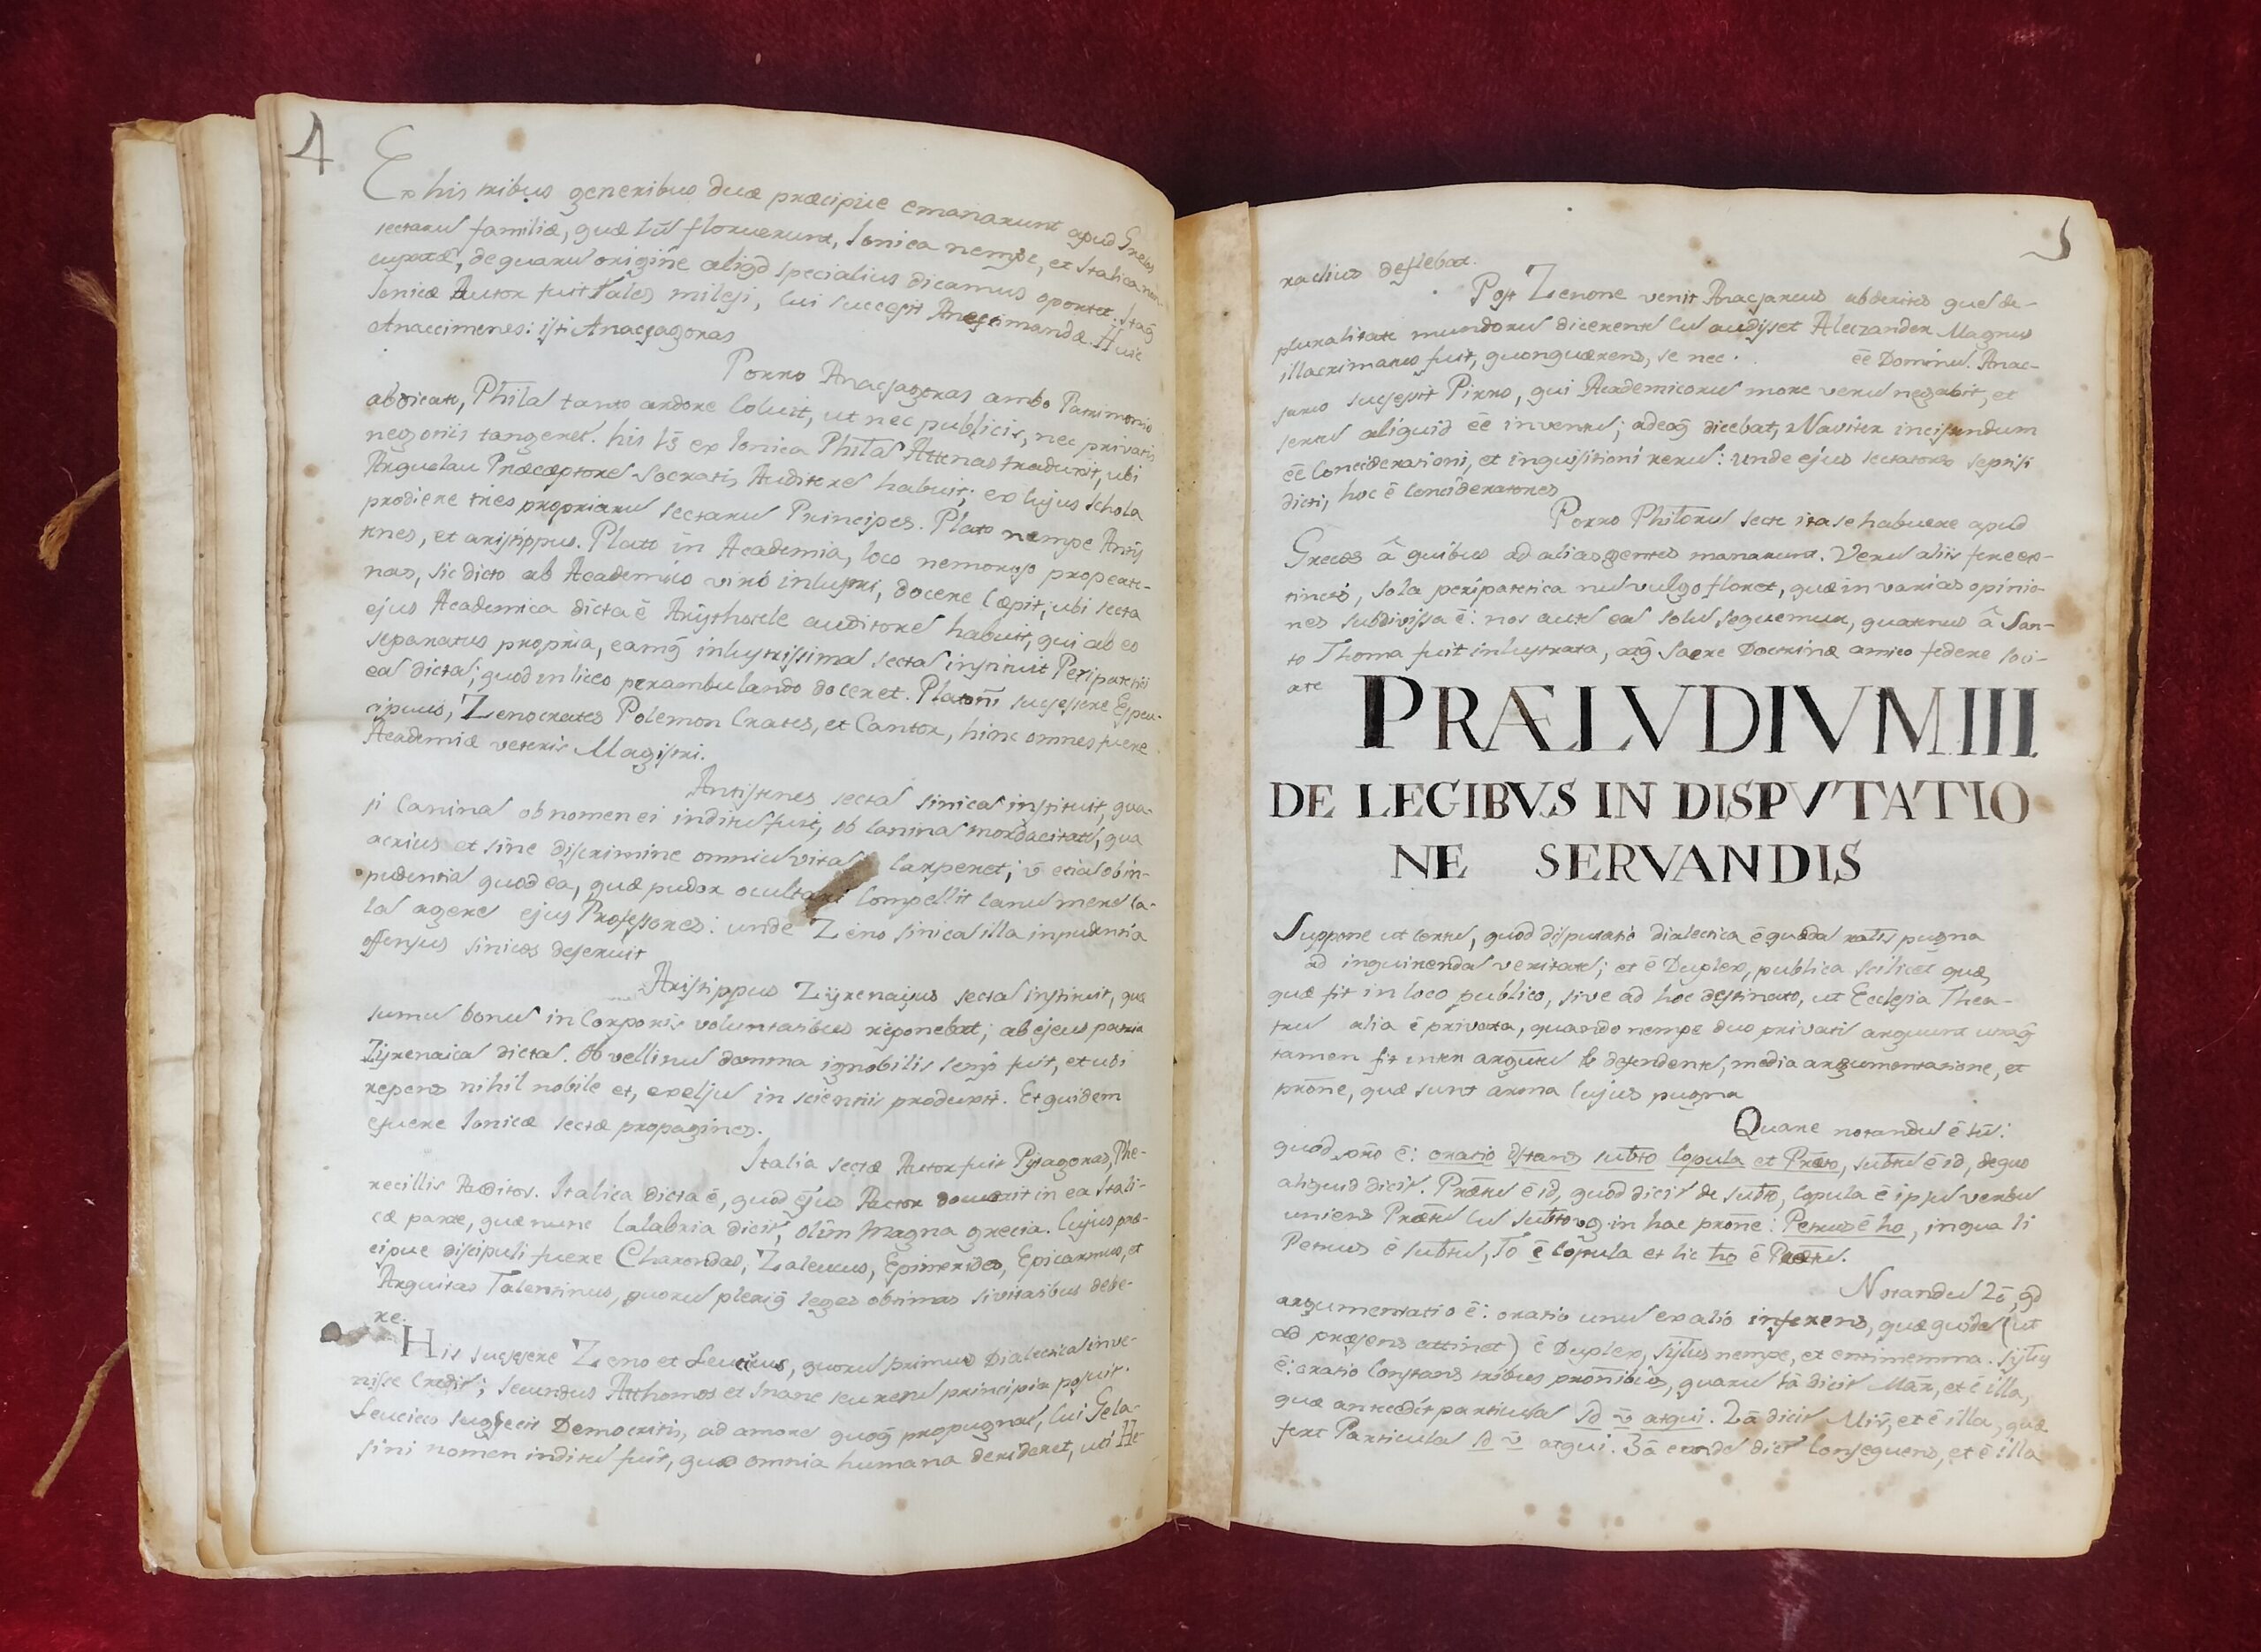 4
Ex his tribus generibus duæ præcipue emanarunt apud Grecos
sectaru familiæ, quæ tū floruerunt, Ionica nempe, et Italica
de quaru origine aliqd specialius dicamus oportet.
Ionicæ Autor fuit Tales milesi, cui succepit Huic
Anaccimenes: isti Anacsagoras
Porro Anacsagoras ambo Patrimonio
abdicate, Philā tanto ardore Coluit, ut nec publicis, nec privatis
negotiis tangeret. his ex Ionica Philā Attenas traduxit, ubi
Præceptore Socratis Auditore habuit; ex cujus schola
prodiere tres propriaru sectaru Principes. Plato nempe Antis
tnes, et aristippus. Plato in Academia, loco nemoroso prope ate-
nas, sic dicto ab Academico viro inlustri, docere Cæpit, ubi secta
ejus Academica dicta ē Arijthotele auditore habuit, qui ab eo
separatus propria, eamq̃ inlustrissima secta instituit Peripatetici
ea dicta; quod in liceo perambulando doceret. Platoni sucsessere Espeu-
cipuus, Zenocrates Polemon Crates, et Cantor, hinc omnes fuere
Academiæ veteris Magistri.
Antistenes secta sinica instituit, qua-
si Canina ob nomen ei inditu fuit, ob canina mordacitate, qua
acrius et sine discrimine omniu vita carperet; v̄ etia ob in-
pudentia quod ea, quæ pudor ocultari Compellit canu mere Ca-
la agere ejus Professores: unde Zeno sinica illa inpudentia
offensus sinicos deseruit
Aristippus Zijrenaijus secta instituit, quæ
sumu bonu in Corporis voluntatibus reponebat; ab ejeus patria
Zijrenaica dicta. Ob vellinu domma ignobilis semp̄ fuit, et ubi
repens nihil nobile et, excelju in scientiis produxit. Et quidem
efuere Ionicæ sectæ propagines.
Italia sectæ Autor fuit Pijtagoras, Phe-
recillis Auditor. Italica dicta ē, quod ejus Auctor docuerit in ea Itali-
cæ parte, quæ nunc Calabria dicit, olim Magna grecia. Cujus præ-
cipue discipuli fuere Charondas, Zaleucus, Epimerides, Epicarmus, et
Arquitas Talentinus, quoru pleriq̃ leges obtimas sivitatibus dede-
re.
His sucsesere Zeno et Leucicus, quoru primus Dialectica inve-
nisse Credit; secundus Atthomos et Inane seu reru principia posuit.
Leucico sugsecit Democritis, ad amore quoq̃ propugnat, cui Gela-
sini nomen inditu fuit, quæ omnia humana derideret, uti He-
5
raclius deflebat.
Post Zenone venit Anacsarcus abderites que de-
pluralitate mundoru dicerente cu audisset Aleczander Magnus
illacrimatus fuit, quonquærens, se nec ēē Dominu. Anac-
sarco sucsepit Pirro, qui Academicoru more veru negabit, et
sentu aliquid ēē inventu; adeoq̃ dicebat, Naviter incisundum
ēē Conciderationi, et inquisitioni reru: unde ejus sectatores septisi
dicti, hoc ē Concideratores
Porro Philoru secte ita se habuere apud
Grecos â quibus ad alias gentes manarunt. Veru aliis fere ex-
tinctis, sola peripatetica nu vulgo floret, quæ in varias opinio-
nes subdivissa ē: nos aute ea solu sequemur, quatnus â San-
to Thoma fuit inlustrata, atq̃ Sacre Doctrinæ amico federe soci-
ate
PRÆLVDIVM III
DE LEGIBVS IN DISPVTATIO
NE SERVANDIS
Suppone ut certu, quod disputatio dialectica ē quæda ratis pugna
ad inquirenda veritate; et ē Duplex, publica scilicet quæ,
quæ fit in loco publico, sive ad hoc destinato, ut Ecclesia Thea-
tru alia ē privata, quando nempe duo privati arguunt utraq̃
tamen fit inter argute & defendente, media argumentatione, et
prōne, quæ sunt arma Cujus pugna
Quare notandu ē tū:
quod prō ē: oratio stans subto Copula et Præto, subtu ē id, de quo
aliquid dicit. Prætu ē id, quod dicit de subto, Copula ē ipsu verbu
uniens Prætu cu subto vg in hac prōne: Petrus ē ho, in qua li
Petrus ē subtu, To ē Copula et lic ho ē Prætu.
Notandu 2ō, qd
argumentatio ē: oratio unu ex alio inferens, quæ quide (ut
ad præsens attinet) ē Duplex, sijlus nempe, et entimemma. Sijlus
ē: oratio Constans tribus pronibus, quaru 1ā dicit Mār, et ē illa,
quæ antecedit particula sd v̄ atqui. 2ā dicit Mir̄, et ē illa, quæ
fert Particula sd v̄ atqui. 3ā eande dicit Consequens, et ē illa